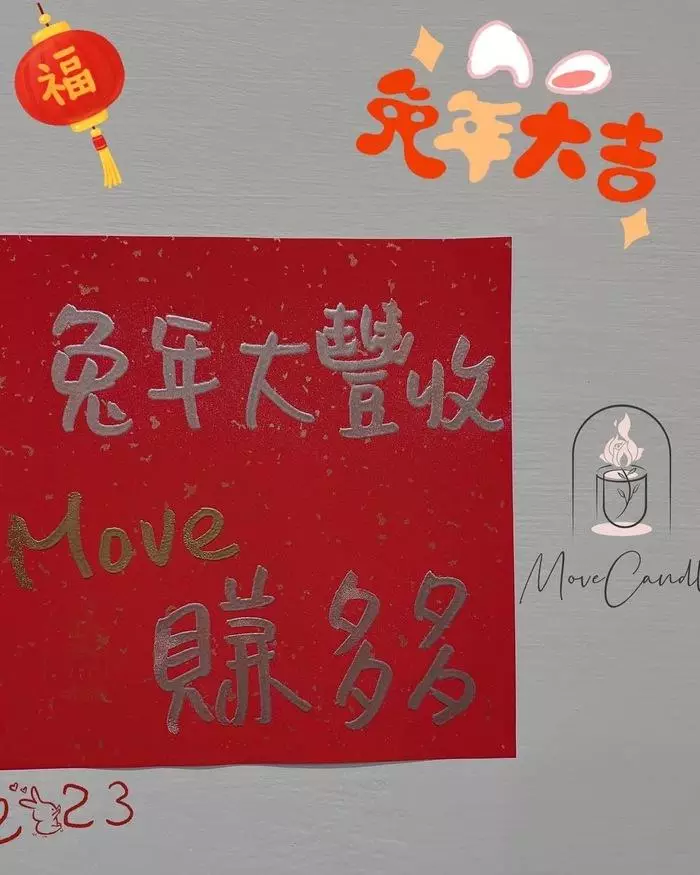 福
兔年大吉
兔年大豐收
Move
賺多多
MoveCandl
2023